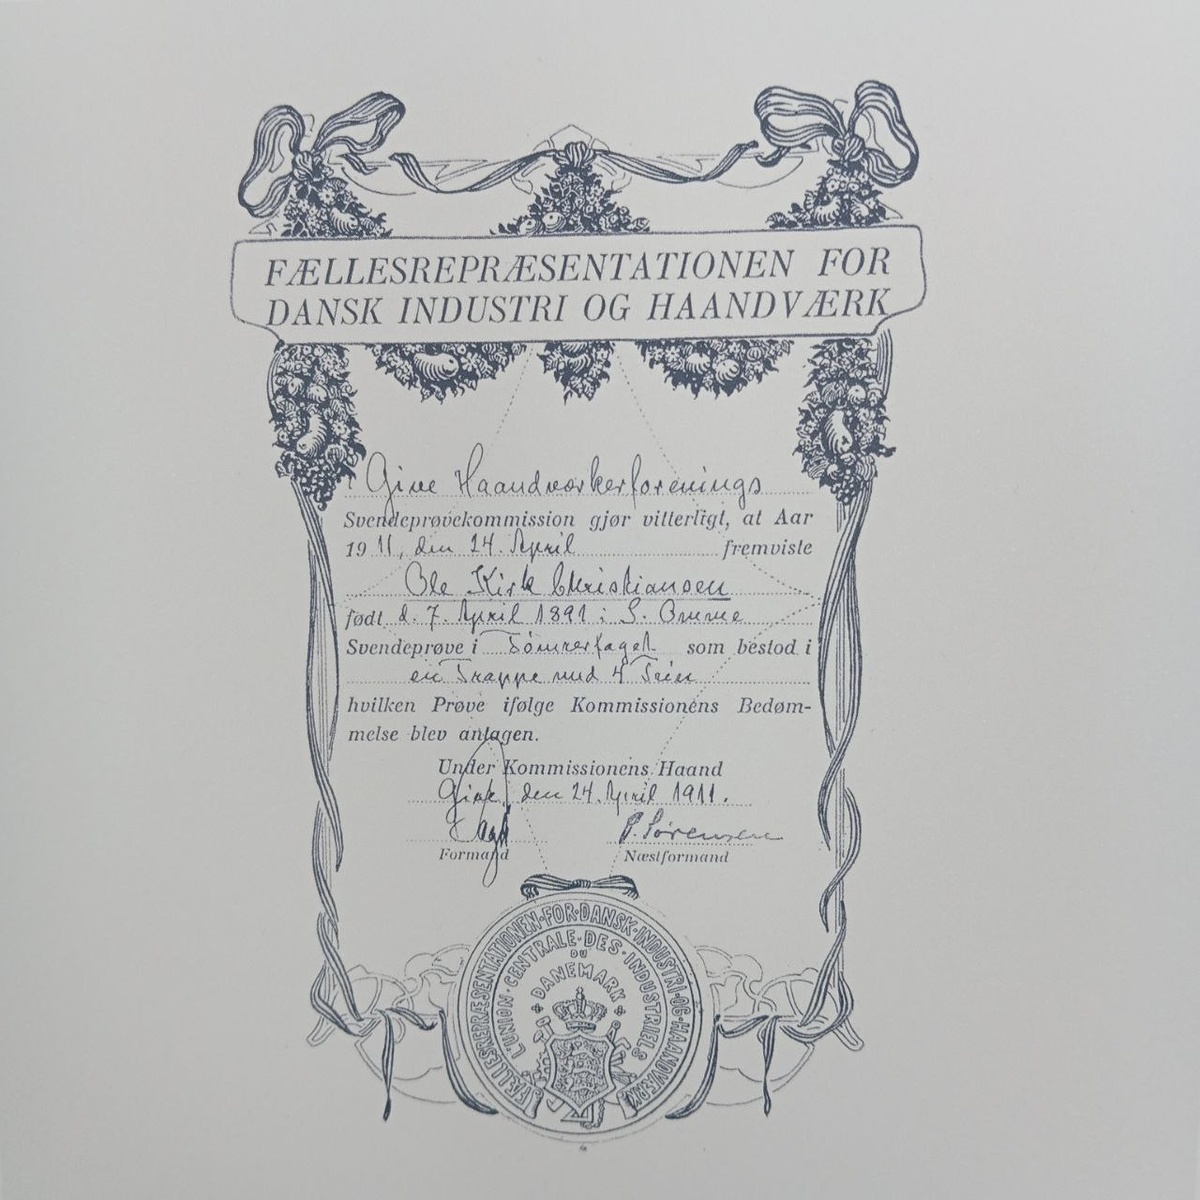 FÆLLESREPRÆSENTATIONEN FOR
DANSK INDUSTRI OG HAANDVÆRK
Give Haandværkerforenings
Svendeprøvekommission gjør vitterligt, at Aar
1911, den 24. April fremviste
Ole Kirk Christiansen
født d. 7. April 1891 i S. Omme
Svendeprøve i Tømrerfaget som bestod i
en Trappe med 4 Trin
hvilken Prøve ifølge Kommissionens Bedøm-
melse blev antagen.
Under Kommissionens Haand
Give, den 24. April 1911.
P. Sørensen
Formand Næstformand
FÆLLESREPRÆSENTATIONEN·FOR·DANSK·INDUSTRI·OG·HAANDVÆRK
L'UNION·CENTRALE·DES·INDUSTRIELS
DU
DANEMARK